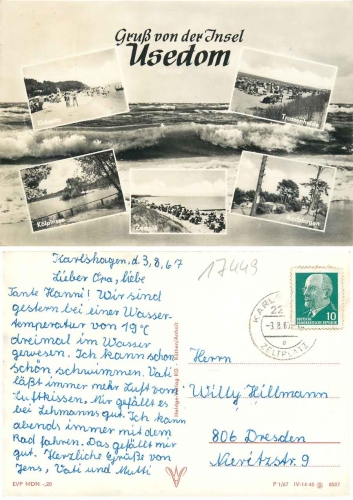 Gruß von der Insel
Usedom
Kölpinsee
17449
Karlshagen, d. 3. 8. 67
Lieber Opa, liebe
Tante Hanni! Wir sind
gestern bei einer Wasser-
temperatur von 19°C
dreimal im Wasser
gewesen. Ich kann schon
schön schwimmen. Vati
läßt immer mehr Luft vom
Luftkissen. Mir gefällt es
bei Lehmanns gut. Ich kann
abends immer mit dem
Rad fahren. Das gefällt mir
gut. Herzliche Grüße von
Jens, Vati und Mutti
22
-3.8.67
ZELTPLATZ
10
DEUTSCHE DEMOKRATISCHE REPUBLIK
Herrn
Willy Hillmann
806 Dresden
Nieritzstr. 9
EVP MDN -,20
P 1/67 IV-14-45